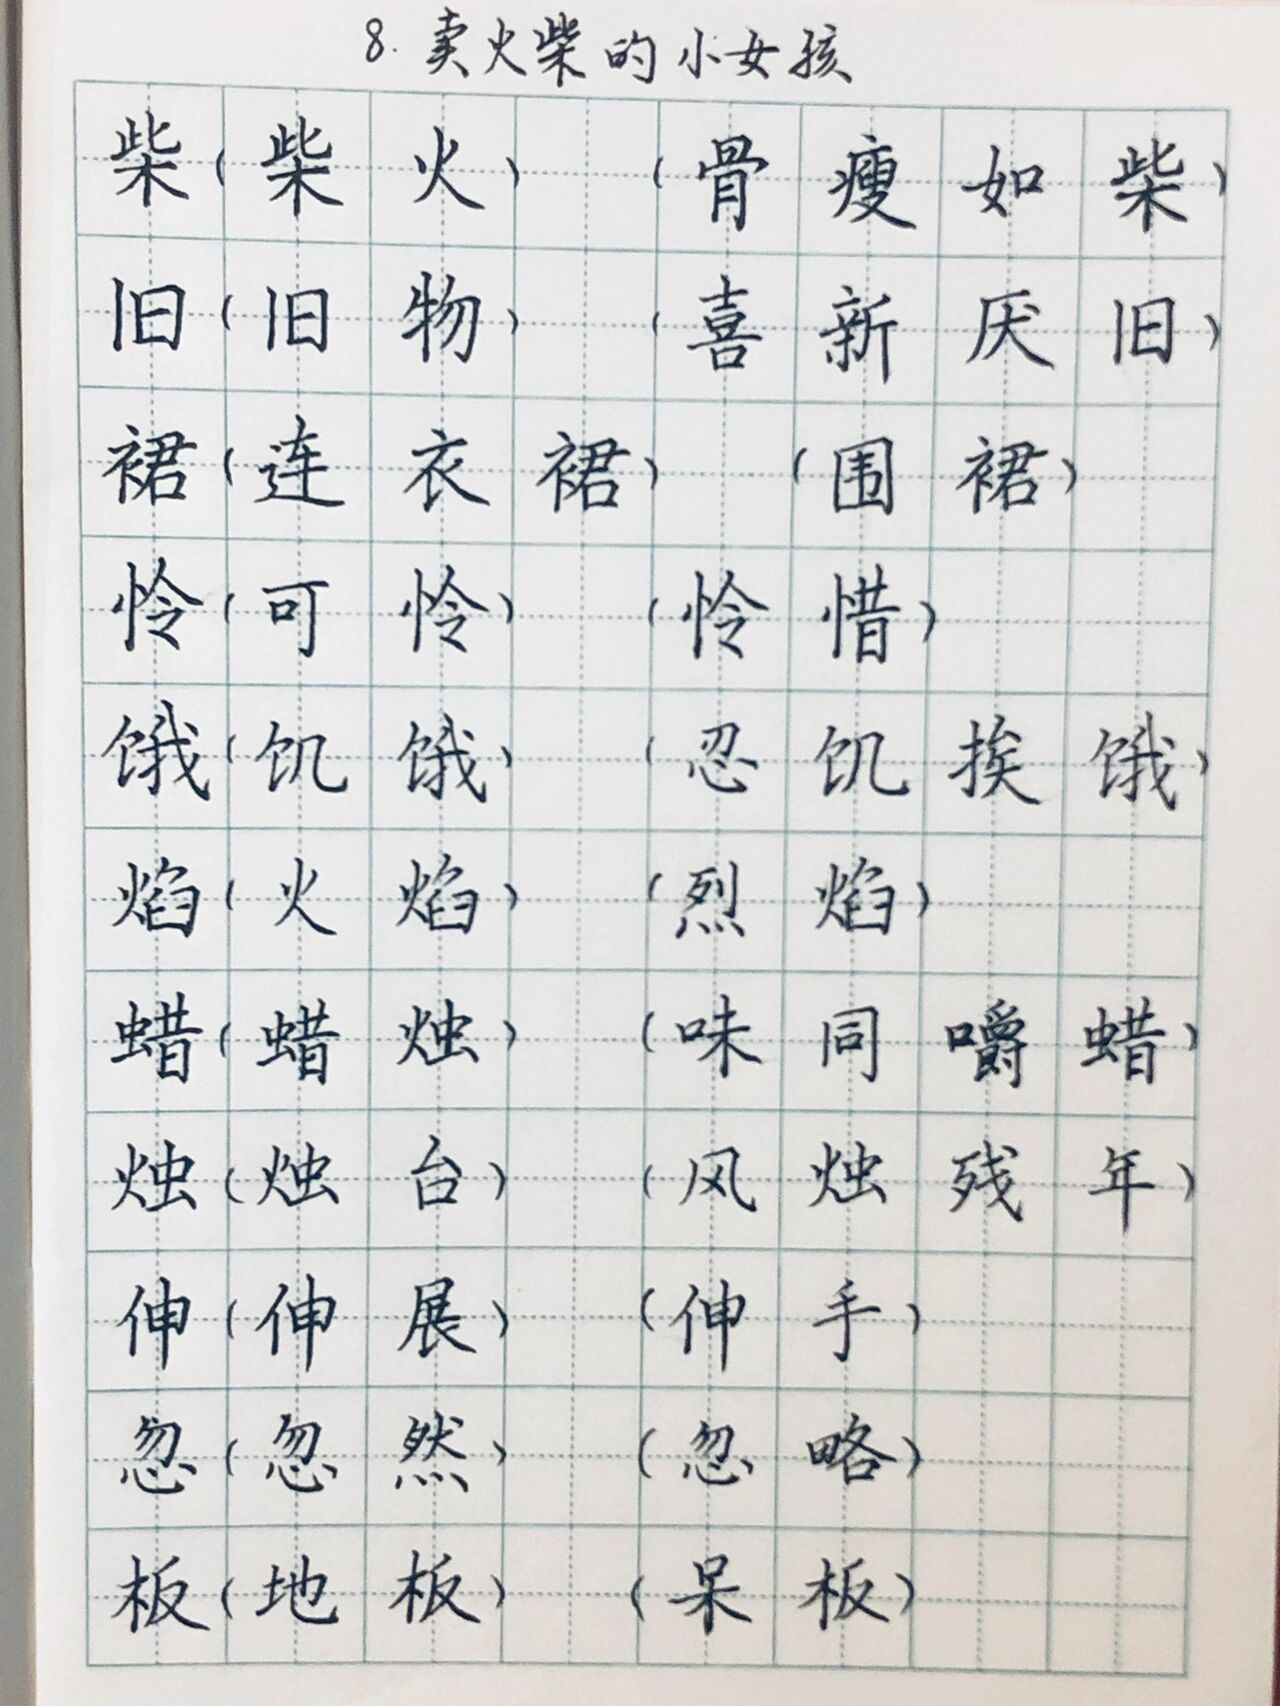 8. 卖火柴的小女孩
柴(柴火) (骨瘦如柴)
旧(旧物) (喜新厌旧)
裙(连衣裙) (围裙)
怜(可怜) (怜惜)
饿(饥饿) (忍饥挨饿)
焰(火焰) (烈焰)
蜡(蜡烛) (味同嚼蜡)
烛(烛台) (风烛残年)
伸(伸展) (伸手)
忽(忽然) (忽略)
板(地板) (呆板)